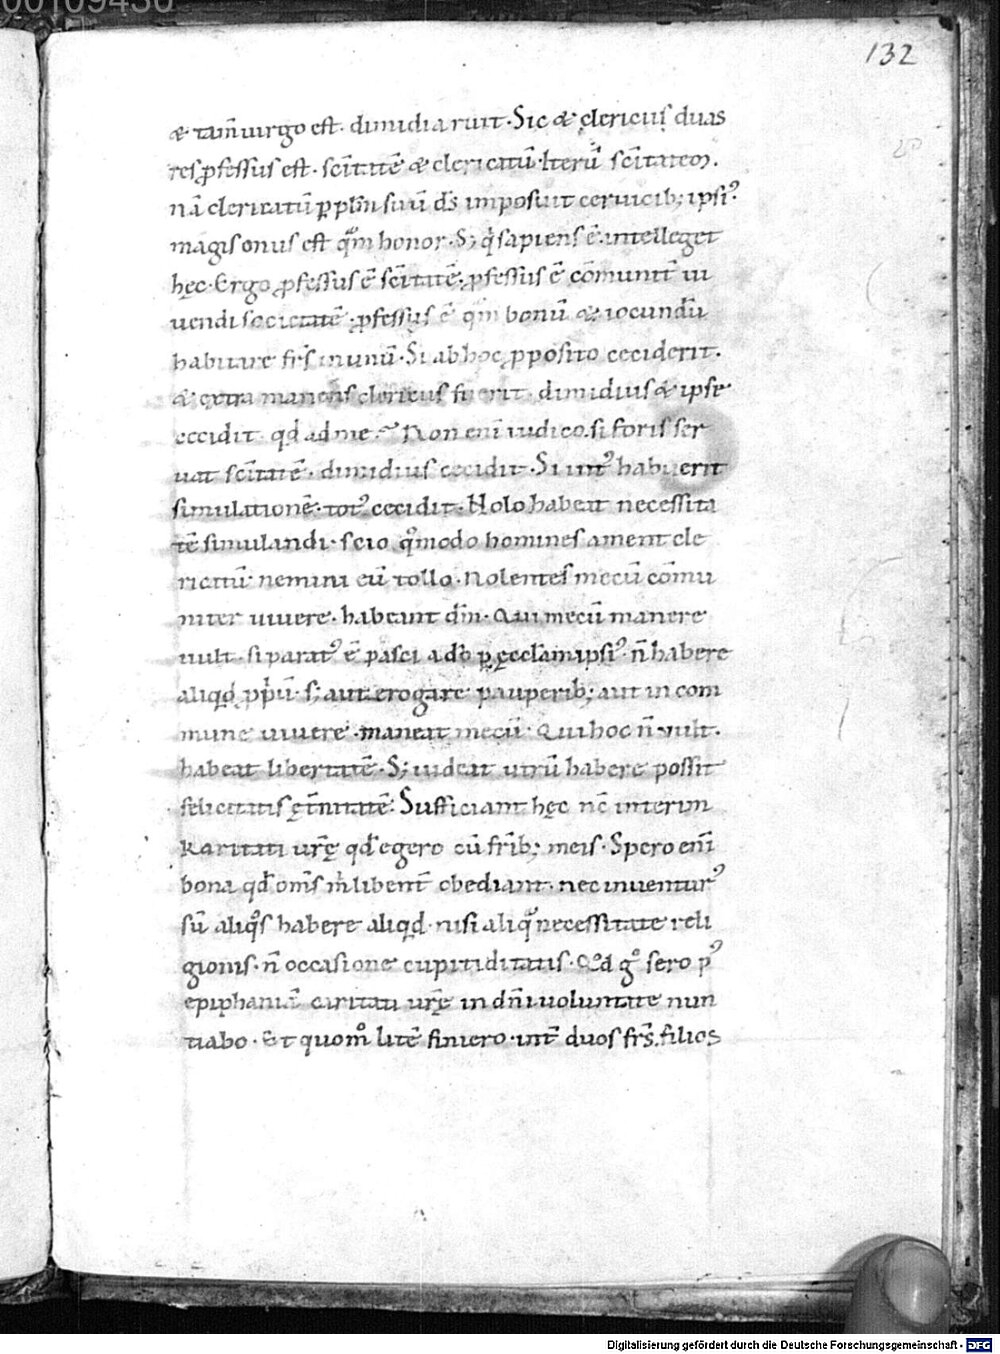 00109430
132
& tam̅ uirgo est. dimidia ruit. Sic & clericus duas
res ꝓfessus est. sc̅itate̅ & clericatu̅. Iteru̅ sc̅itatem.
na̅ clericatu̅ ꝑ pl̅m suu̅ ds̅ imposuit ceruicib; ipsi᾽.
magis onus est qua̅m honor. S; q̍s sapiens e̅. intelleget
hęc. Ergo ꝓfessus e̅ sc̅itate̅. ꝓfessus e̅ co̅munit̅ ui
uendi societate̅. ꝓfessus e̅ qm̅ bonu̅ & iocundu̅
habitare fr̅s in unu̅. Si ab hoc ꝓposito ceciderit.
& extra manens clericus fuerit. dimidius & ipse
cecidit. qd ad me. Non eni̅ iudico. si foris ser
uat sc̅itate̅. dimidius cecidit. Si int᾽ habuerit
simulatione̅. tot᾽ cecidit. Nolo habeat necessita
te̅ simulandi. scio qͦmodo homines ament cle
ricatu̅. nemini eu̅ tollo. Nolentes mecu̅ co̅mu
niter uiuere. habeant dm̅. Qui mecu̅ manere
uult. si parat᾽ e̅ pasci a do̅ ꝑ ęccl̅am ipsi᾽. n̅ habere
aliqd ꝓpriu̅. s; aut erogare pauperib; aut in com
mune uiuere. maneat mecu̅. Qui hoc n̅ uult.
habeat libertate̅. S; uideat utru̅ habere possit
felicitatis ęt̅nitate̅. Sufficiant hęc nc̅ interim
Karitati ur̅ę qd egero cu̅ fr̅ib; meis. Spero eni̅
bona qd om̅s m̍ libent̅ obediant. nec inuentur᾽
su̅ aliqͦs habere aliqd. nisi aliqua̅ necessitate reli
gionis. n̅ occasione cupiditatis. Qd gͦ sero p᾽
epiphania̅ caritati ur̅ę in dn̅i uoluntate nun
tiabo. Et quomͦ lite̅ finiero. int̅ duos fr̅s. filios
Digitalisierung gefördert durch die Deutsche Forschungsgemeinschaft - DFG